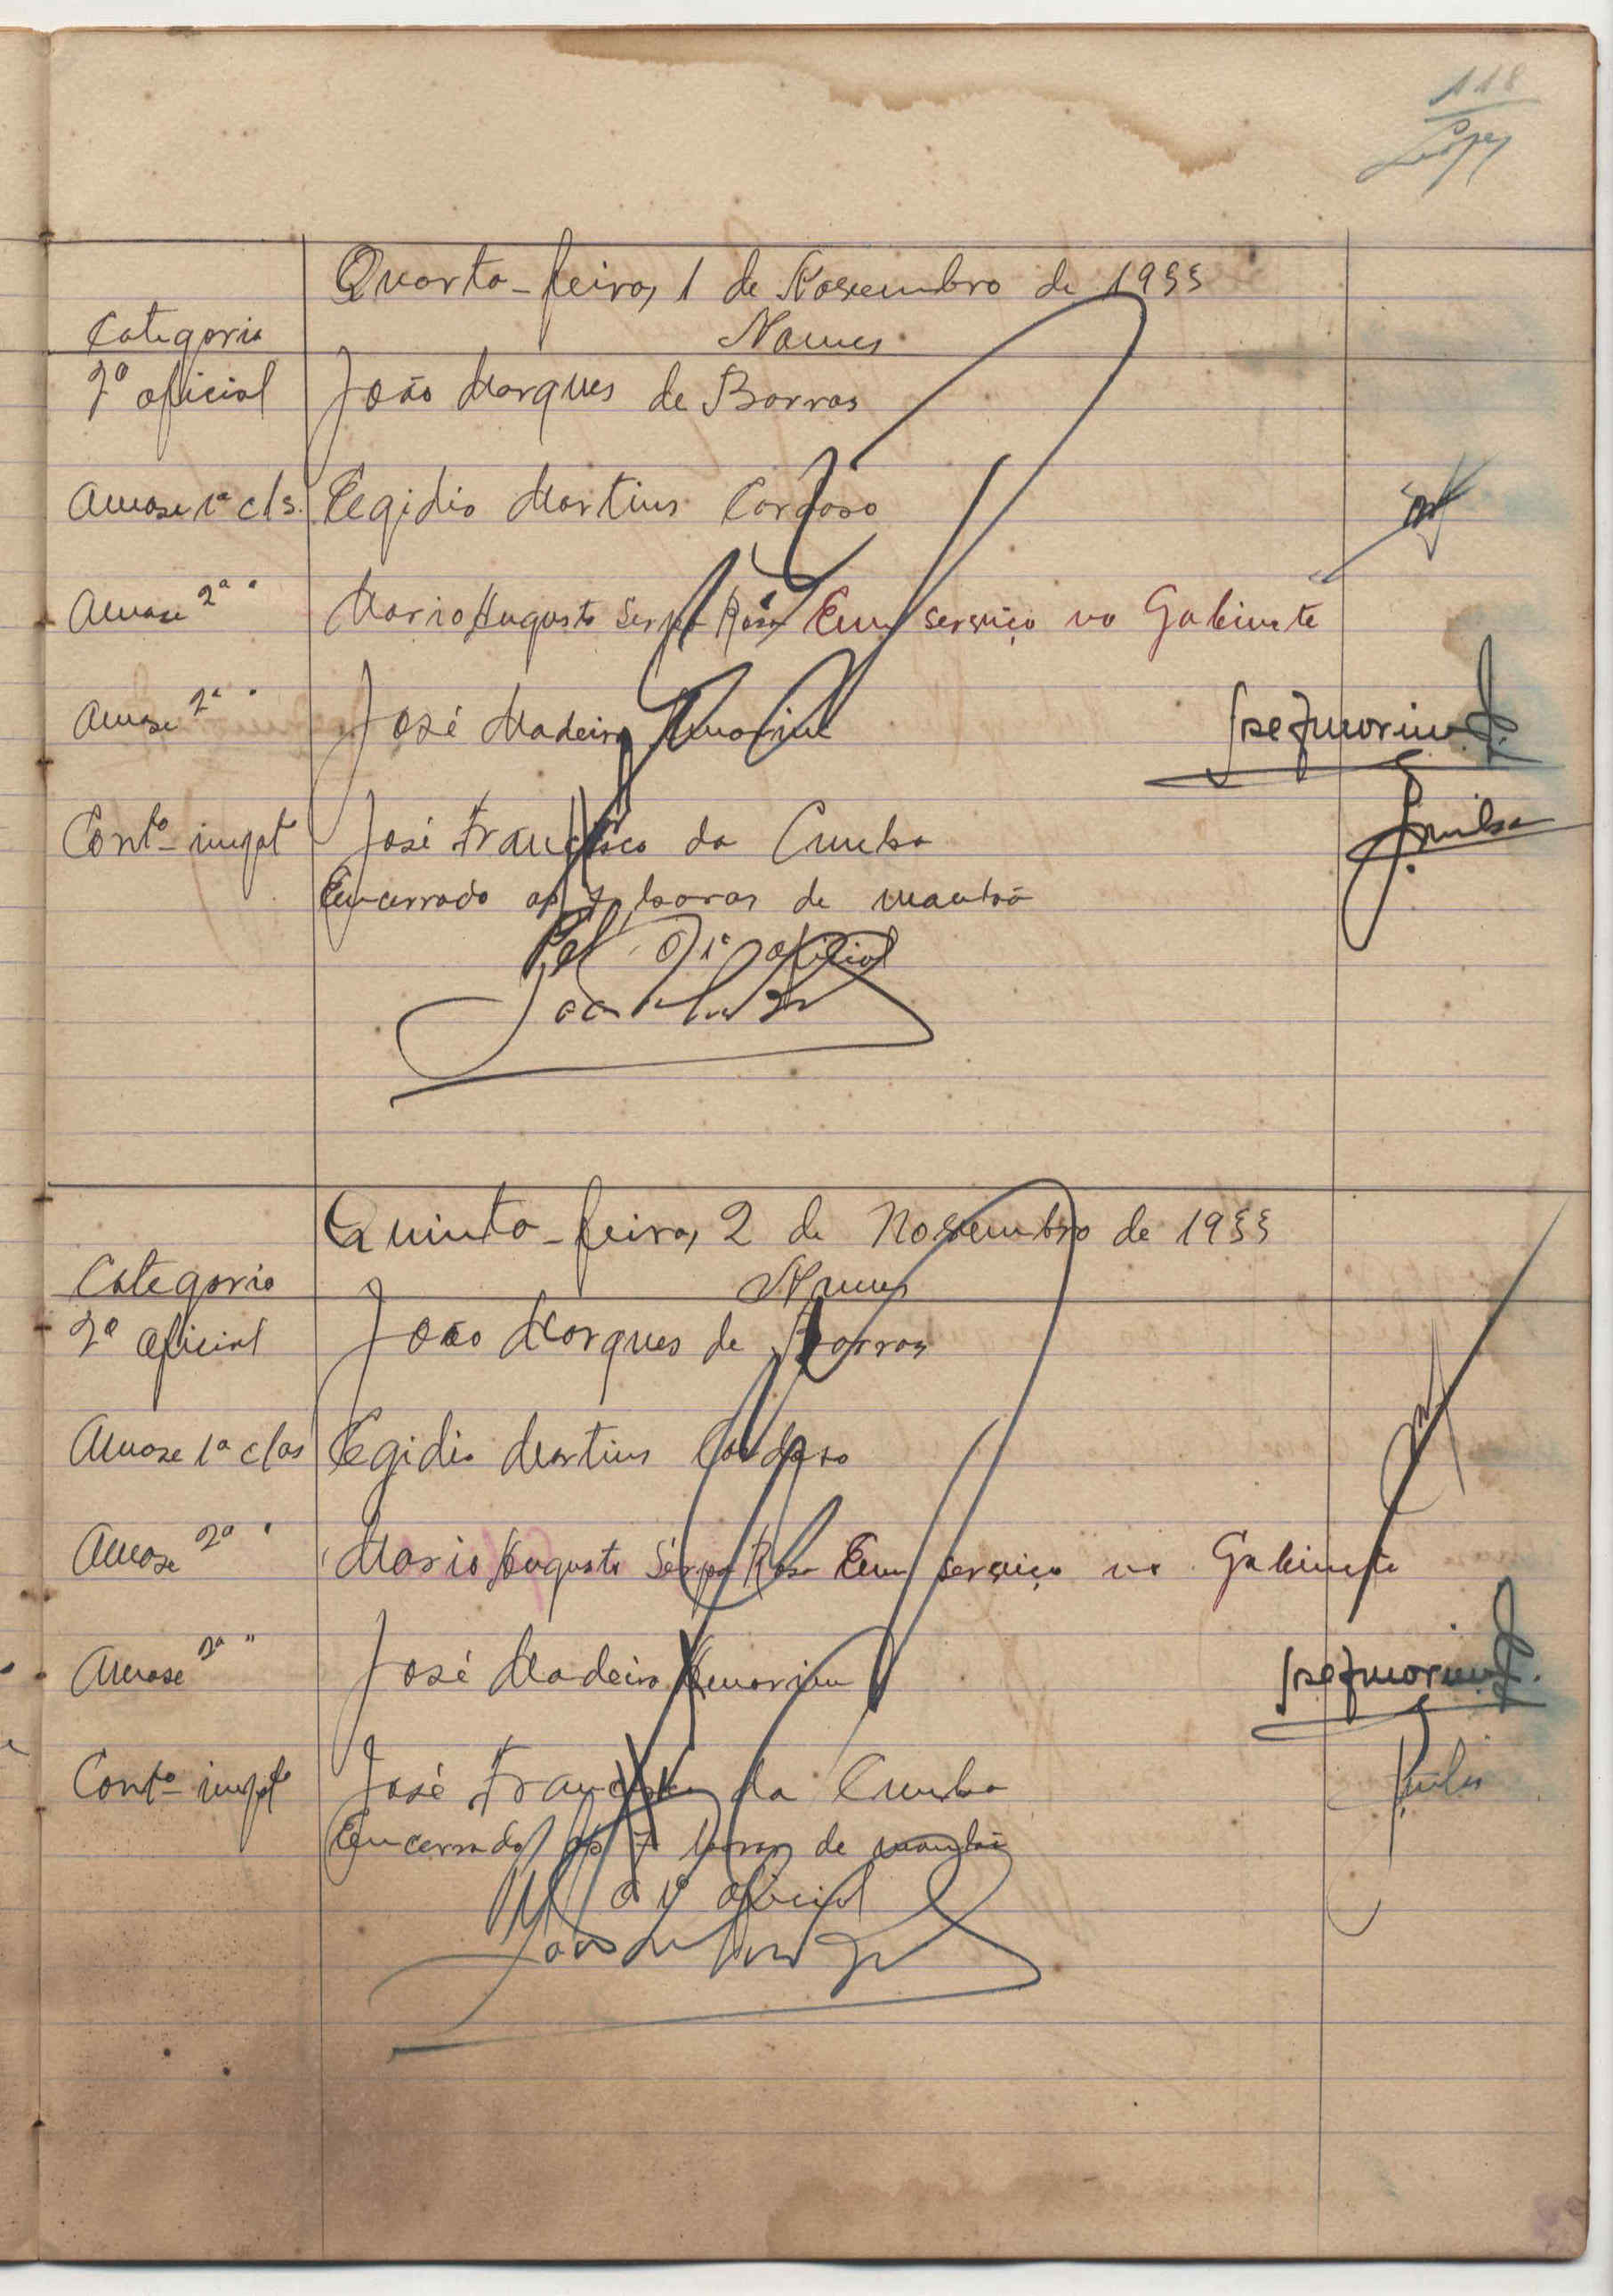 118
Lopes
Quarta-feira, 1 de Novembro de 1933
Categoria Nomes
2º oficial João Marques de Barros
Amase 1ª cls. Egidio Martins Cardoso
Amase 2ª " Mario Augusto Serpa Rosa Em serviço no Gabinete
Amase 2ª " José Madeira Amorim José Amorim
Contº impt José Francisco da Cunha Cunha
Encerrado as 7 horas de manhã
Pel' O 1º oficial
Quinta-feira, 2 de Novembro de 1933
Categoria Nomes
2º oficial João Marques de Barros
Amase 1ª clas Egidio Martins Cardoso
Amase 2ª " Mario Augusto Sérpa Rosa Em serviço no Gabinete
Amase 2ª " José Madeira Amorim José Amorim
Contº impt José Francisco da Cunha
Encerrado as 7 horas de manhã
O 1º oficial